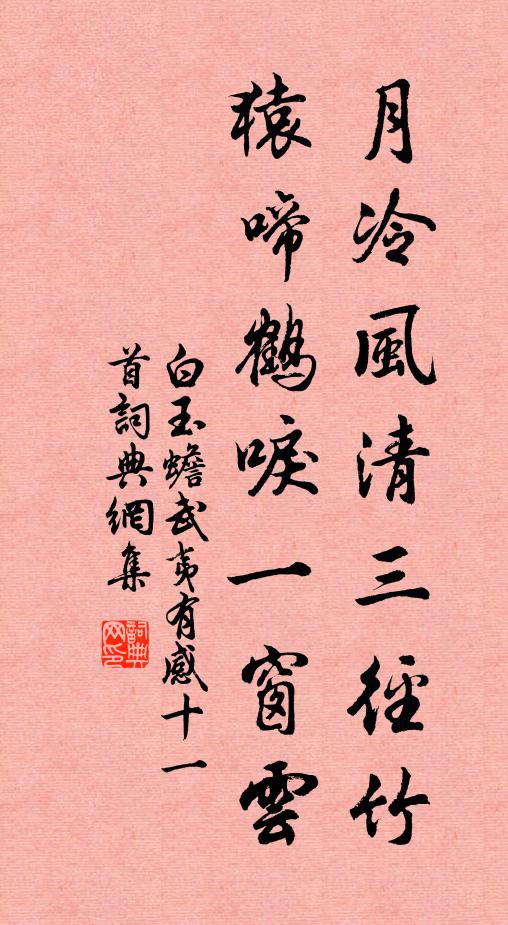 月冷風清三徑竹
猿啼鶴唳一窗雲
白玉蟾武夷有感十一
首詞典網集
詞典網印